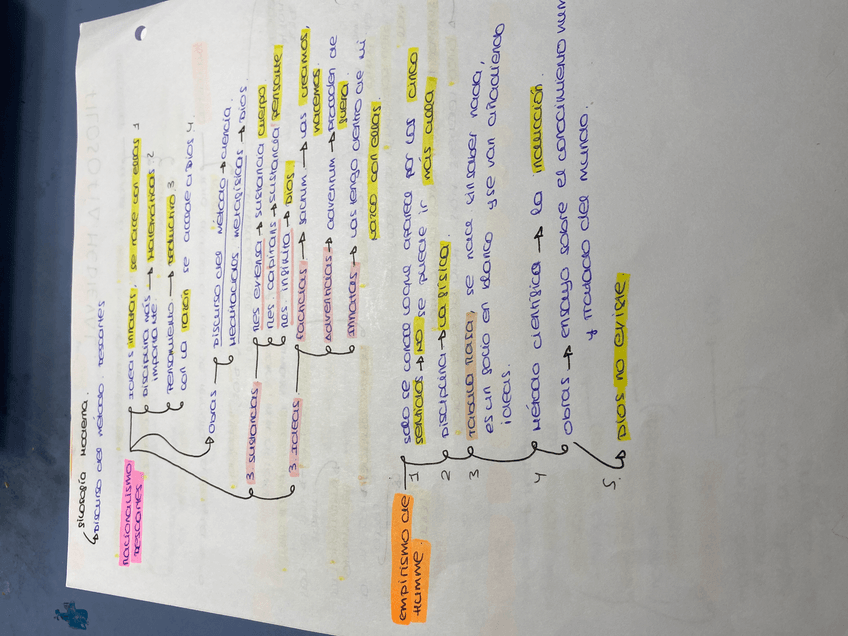 filosofía moderna.
Discurso del método. Descartes
Racionalismo
Descartes
Ideas innatas, se nace con ellas 1
Disciplina más → Matemáticas 2
importante.
Pensamiento → deductivo 3
con la razón se accede a Dios 4
Obras → Discurso del método → ciencia.
Meditaciones metafísicas → Dios.
3 sustancias
Res extensa → sustancia cuerpo
Res cogitans → sustancia pensante
Res infinita → Dios.
3. Ideas
Facticias → factum → las creamos,
hacemos.
Adventicias → adventum → proceden de
fuera.
Innatas → las tengo dentro de mi
nazco con ellas.
empirismo de
Humme.
1 solo se conoce lo que aparece por los cinco
sentidos → NO se puede ir más allá
2 Disciplina → la física.
3 Tabula rasa, se nace sin saber nada,
es un folio en blanco y se van añadiendo
ideas.
4 Método científico → la inducción.
Obras → ensayo sobre el conocimiento hum
y tratado del mundo.
5. Dios no existe.